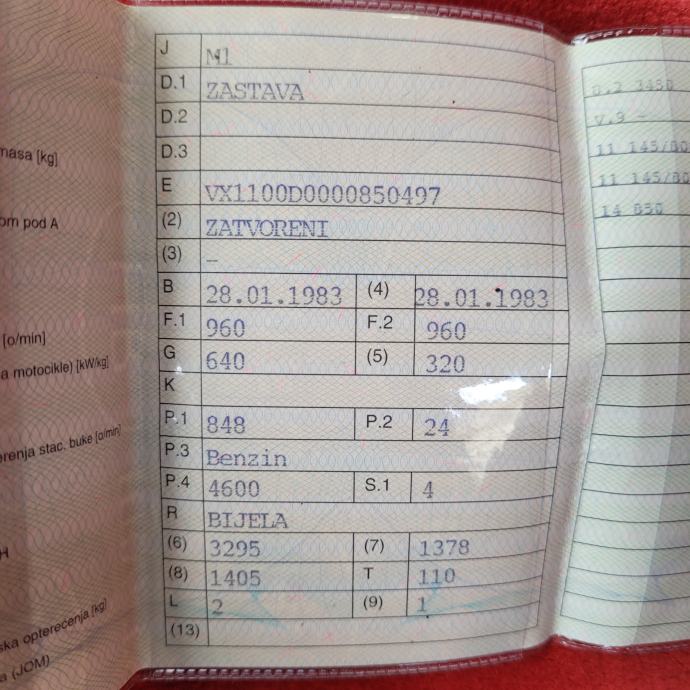 J M1
D.1 ZASTAVA
D.2
D.3
E VX1100D0000850497
(2) ZATVORENI
(3) –
B 28.01.1983 (4) 28.01.1983
F.1 960 F.2 960
G 640 (5) 320
K
P.1 848 P.2 24
P.3 Benzin
P.4 4600 S.1 4
R BIJELA
(6) 3295 (7) 1378
(8) 1405 T 110
L 2 (9) 1
(13)
masa [kg]
om pod A
[o/min]
a motocikle) [kW/kg]
erenja stac. buke [o/min]
H
ska opterećenja [kg]
a (JOM)
V.9 -
11 145/80
11 145/80
14 850